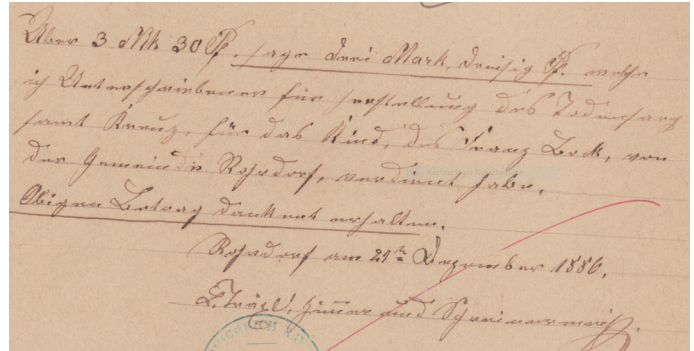 Über 3 Mk 30 Pf. sage drei Mark, dreisig Pf. welche
ich Unterschriebener für herstellung des Todensarg
samt Kreuz, für das Kind, des Franz Bock, von
der Gemeinde Rohrdorf, verdient habe.
Obigen Betrag dankent erhalten.
Rohrdorf am 29ten Dezember 1886.
Zimer und Schreinermeist.